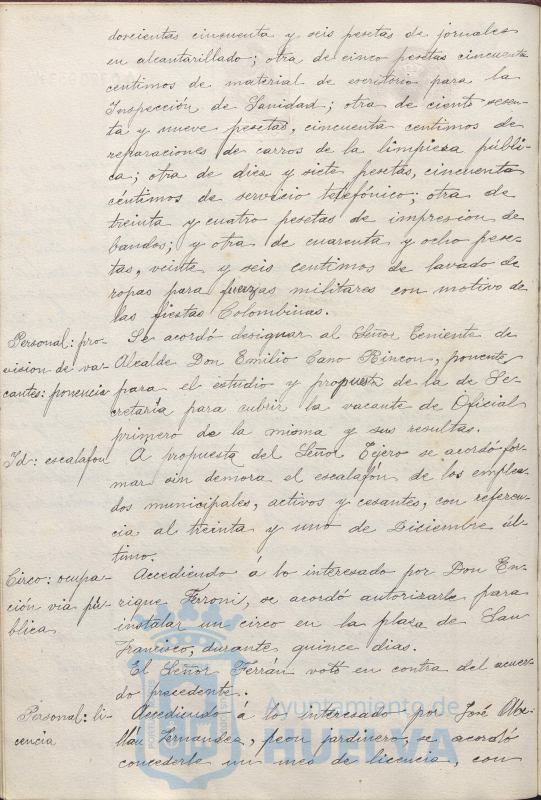 doscientas cincuenta y seis pesetas de jornales
en alcantarillado; otra de cinco pesetas cincuenta
centimos de material de escritorio para la
Inspección de Sanidad; otra de ciento sesen-
ta y nueve pesetas, cincuenta centimos de
reparaciones de carros de la limpieza públi-
ca; otra de diez y siete pesetas, cincuenta
céntimos de servicio telefónico; otra de
treinta y cuatro pesetas de impresion de
bandos; y otra de cuarenta y ocho pese-
tas, veinte y seis centimos de lavado de
ropas para fuerzas militares con motivo de
las fiestas Colombinas.
Personal: pro-
vision de va-
cantes: ponencia
Se acordó designar al Señor Teniente de
Alcalde Don Emilio Cano Rincon, ponente
para el estudio y propuesta de la de Se-
cretaría para cubrir la vacante de Oficial
primero de la misma y sus resultas.
Id: escalafon
A propuesta del Señor Tejero se acordó for-
mar sin demora el escalafón de los emplea-
dos municipales, activos y cesantes, con referen-
cia al treinta y uno de Diciembre úl-
timo.
Circo: ocupa-
ción via pú-
blica
Accediendo á lo interesado por Don En-
rique Ferroni, se acordó autorizarle para
instalar un circo en la plaza de San
Francisco, durante quince dias.
El Señor Terrán votó en contra del acuer-
do precedente.
Personal: li-
cencia
Accediendo á lo interesado por José
peon jardinero, se acordó
concederle un mes de licencia, con
Ayuntamiento de
HUELVA